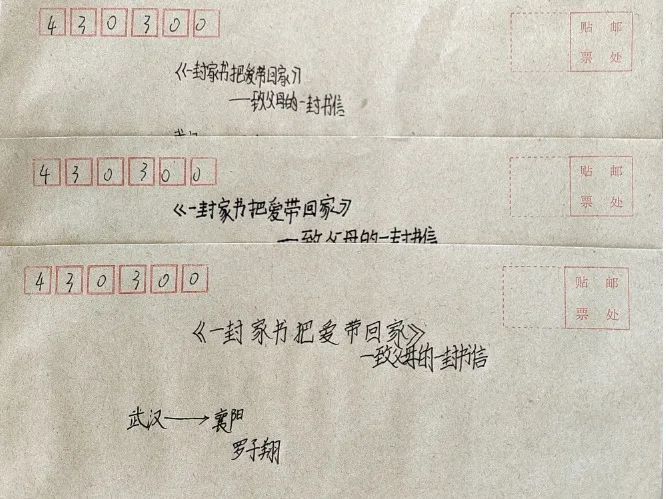 430300
贴 邮
票 处
《一封家书把爱带回家》
一致父母的一封书信
430300
贴 邮
票 处
《一封家书把爱带回家》
一致父母的一封书信
430300
贴 邮
票 处
《一封家书把爱带回家》
一致父母的一封书信
武汉→襄阳
罗子翔